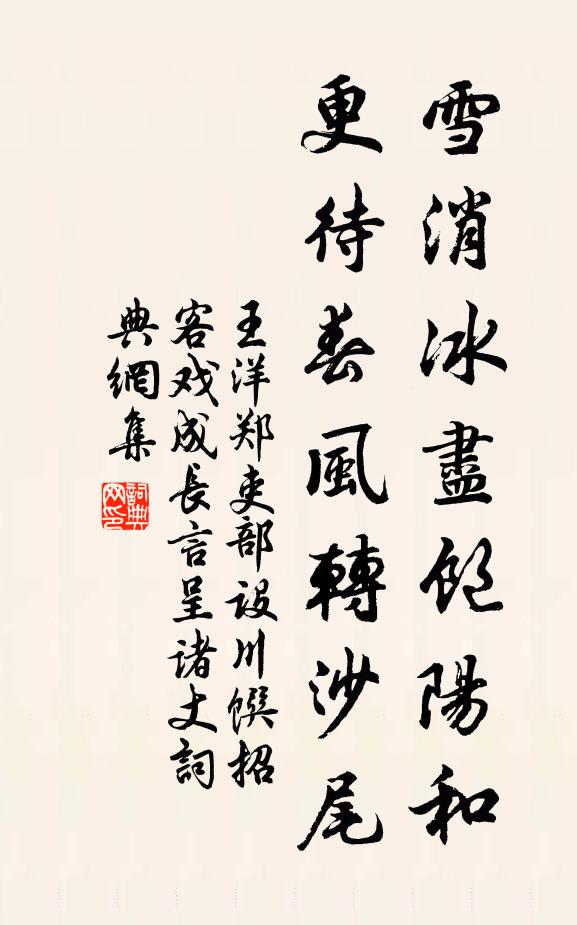 雪消冰盡飽陽和
更待春風轉沙尾
王洋郑吏部设川馔招
客戏成长言呈诸丈詞
典網集
詞典
网印